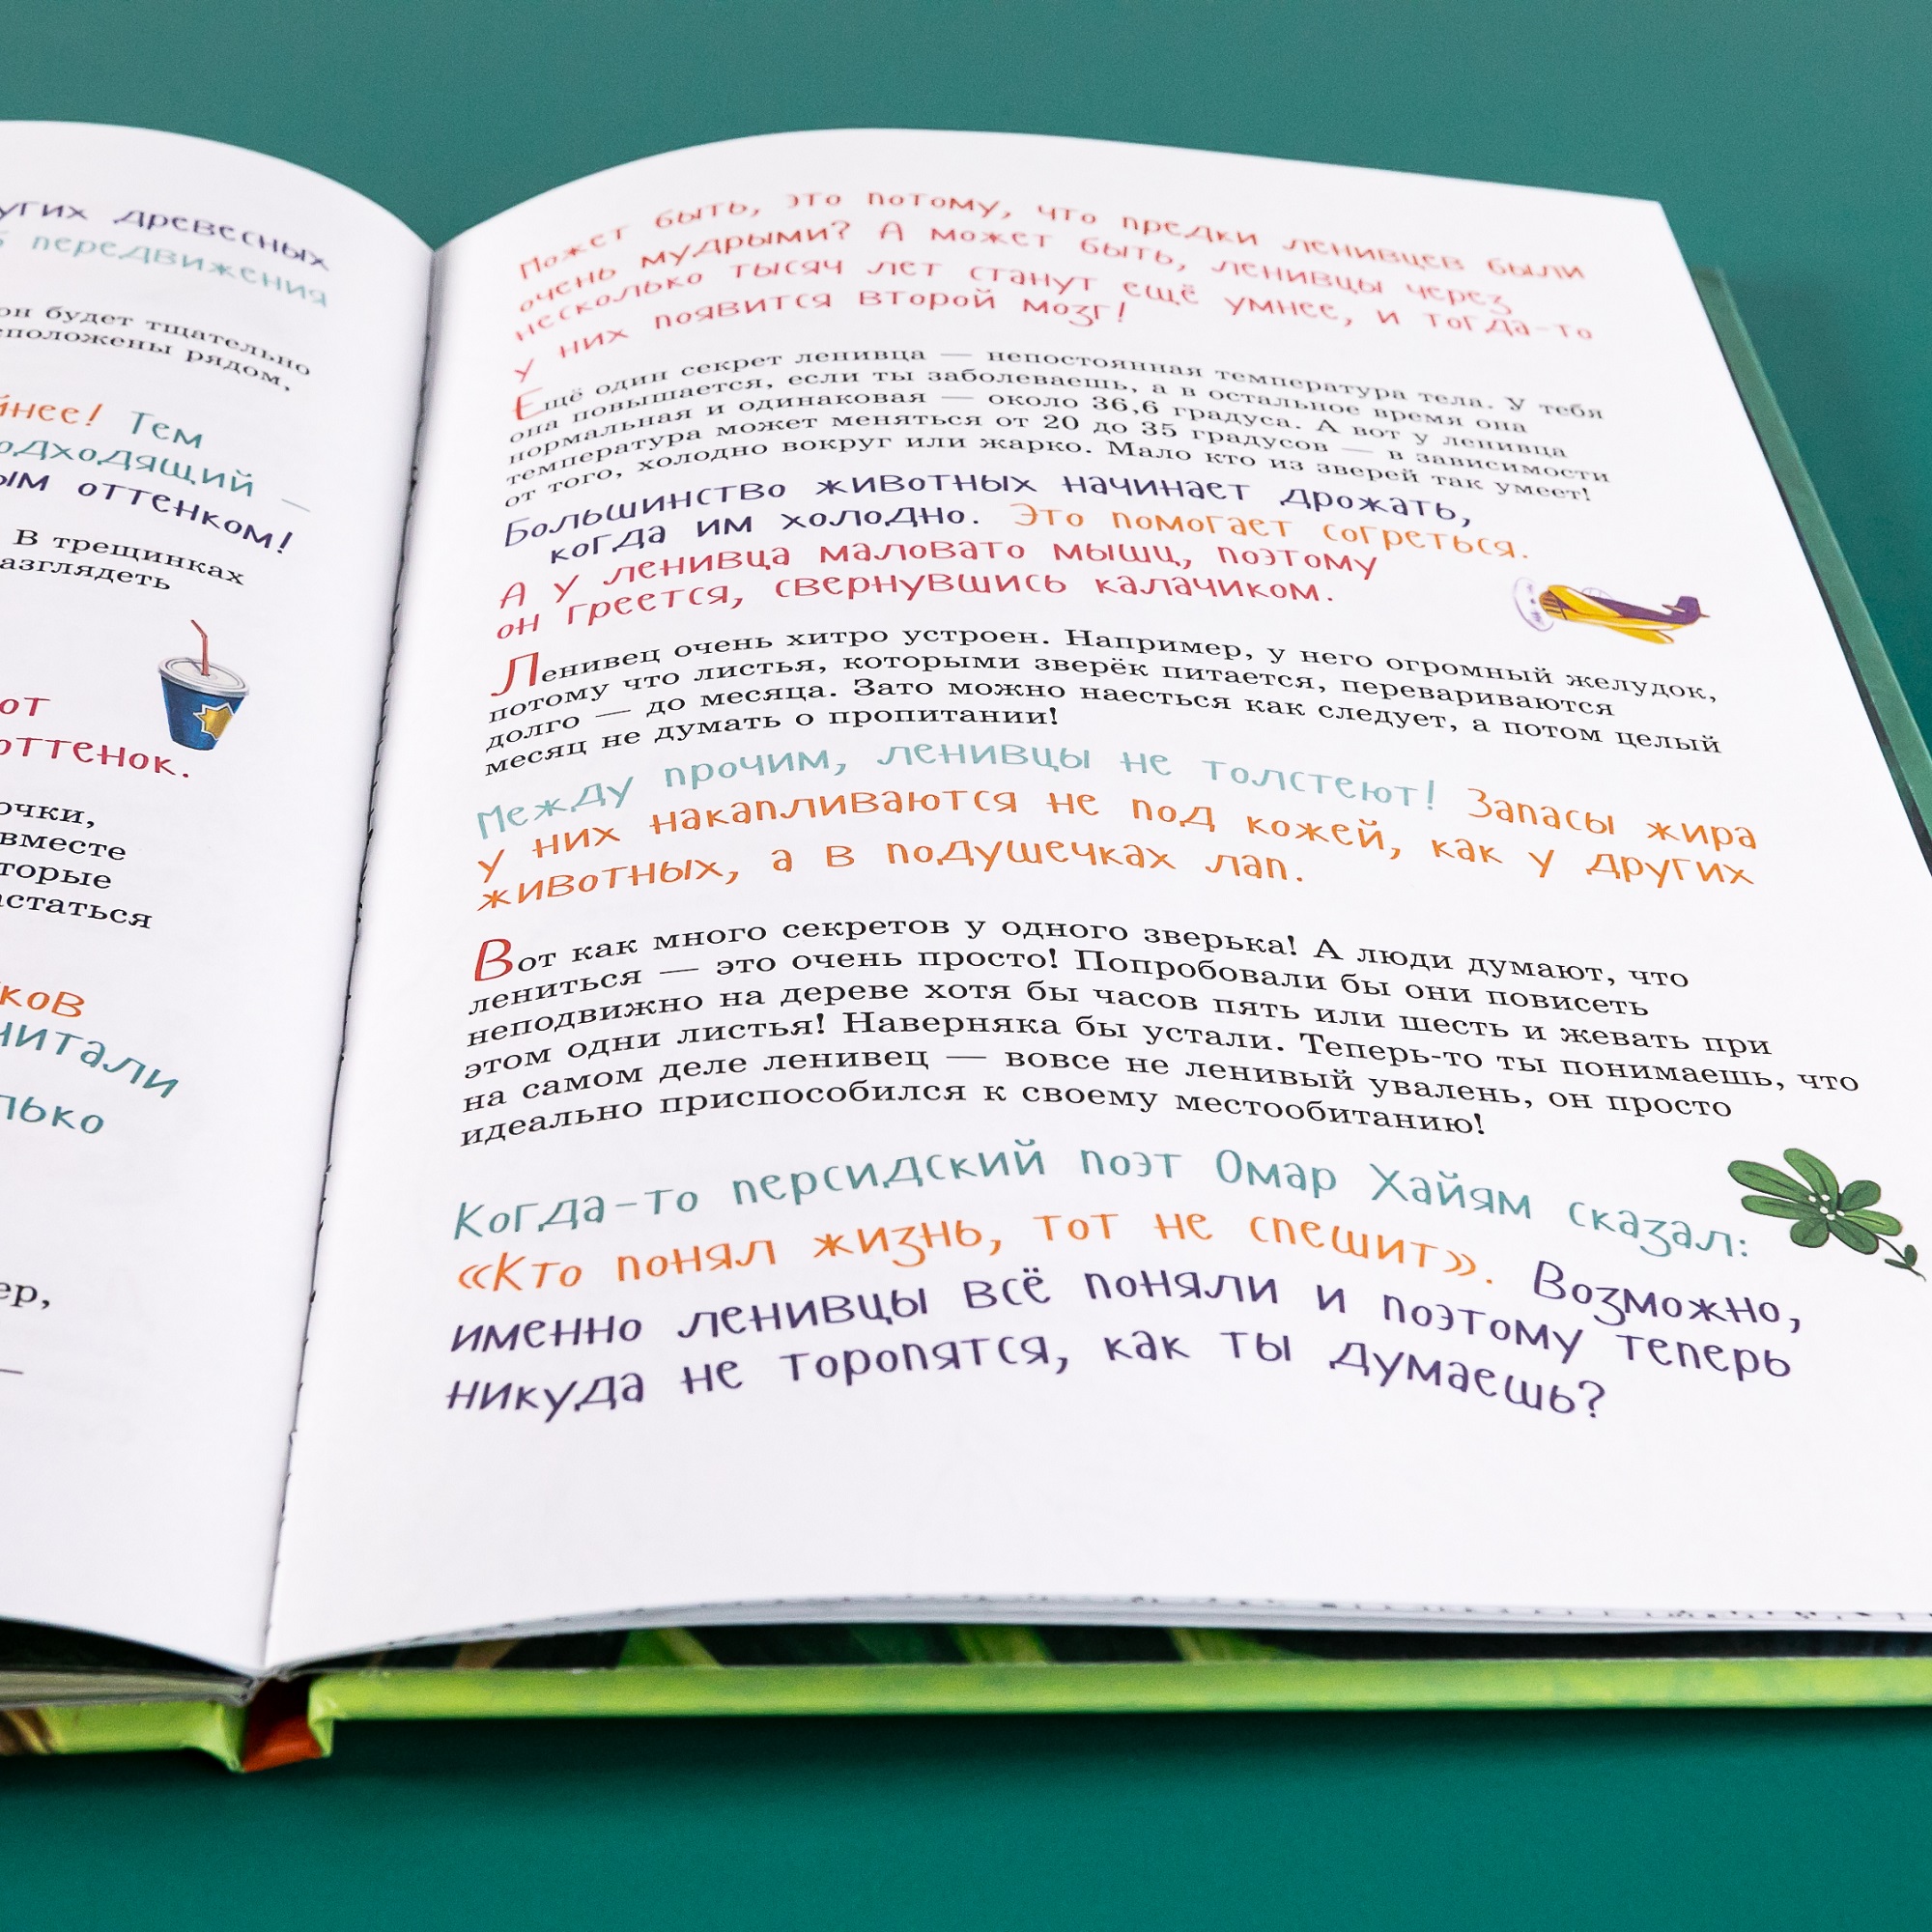 древесных
передвижения
он будет тщательно
рядом,
Тем
оттенком!
В трещинках
оттенок.
вместе
Может быть, это потому, что предки ленивцев были
очень мудрыми? А может быть, ленивцы через
несколько тысяч лет станут ещё умнее, и тогда-то
у них появится второй мозг!
Ещё один секрет ленивца — непостоянная температура тела. У тебя
она повышается, если ты заболеваешь, а в остальное время она
нормальная и одинаковая — около 36,6 градуса. А вот у ленивца
температура может меняться от 20 до 35 градусов — в зависимости
от того, холодно вокруг или жарко. Мало кто из зверей так умеет!
Большинство животных начинает дрожать,
когда им холодно. Это помогает согреться.
А у ленивца маловато мышц, поэтому
он греется, свернувшись калачиком.
Ленивец очень хитро устроен. Например, у него огромный желудок,
потому что листья, которыми зверёк питается, перевариваются
долго — до месяца. Зато можно наесться как следует, а потом целый
месяц не думать о пропитании!
Между прочим, ленивцы не толстеют! Запасы жира
у них накапливаются не под кожей, как у других
животных, а в подушечках лап.
Вот как много секретов у одного зверька! А люди думают, что
лениться — это очень просто! Попробовали бы они повисеть
неподвижно на дереве хотя бы часов пять или шесть и жевать при
этом одни листья! Наверняка бы устали. Теперь-то ты понимаешь, что
на самом деле ленивец — вовсе не ленивый увалень, он просто
идеально приспособился к своему местообитанию!
Когда-то персидский поэт Омар Хайям сказал:
«Кто понял жизнь, тот не спешит». Возможно,
именно ленивцы всё поняли и поэтому теперь
никуда не торопятся, как ты думаешь?